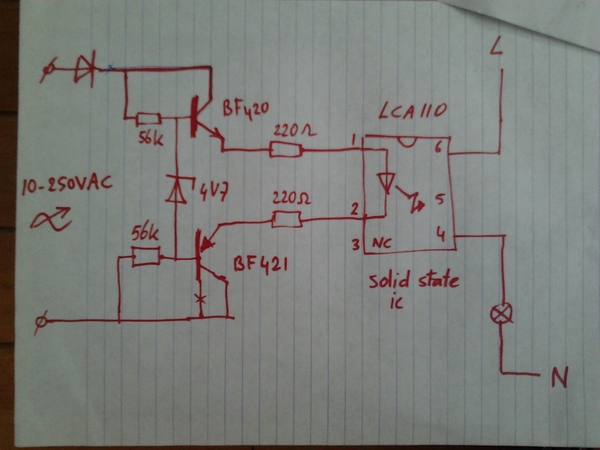 L
BF420
LCA110
56k
220Ω
1
6
10-250VAC
4V7
220Ω
2
5
56k
3
NC
4
BF421
solid state
ic
N